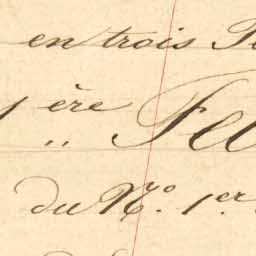 en trois
1ère Fe
du No. 1er